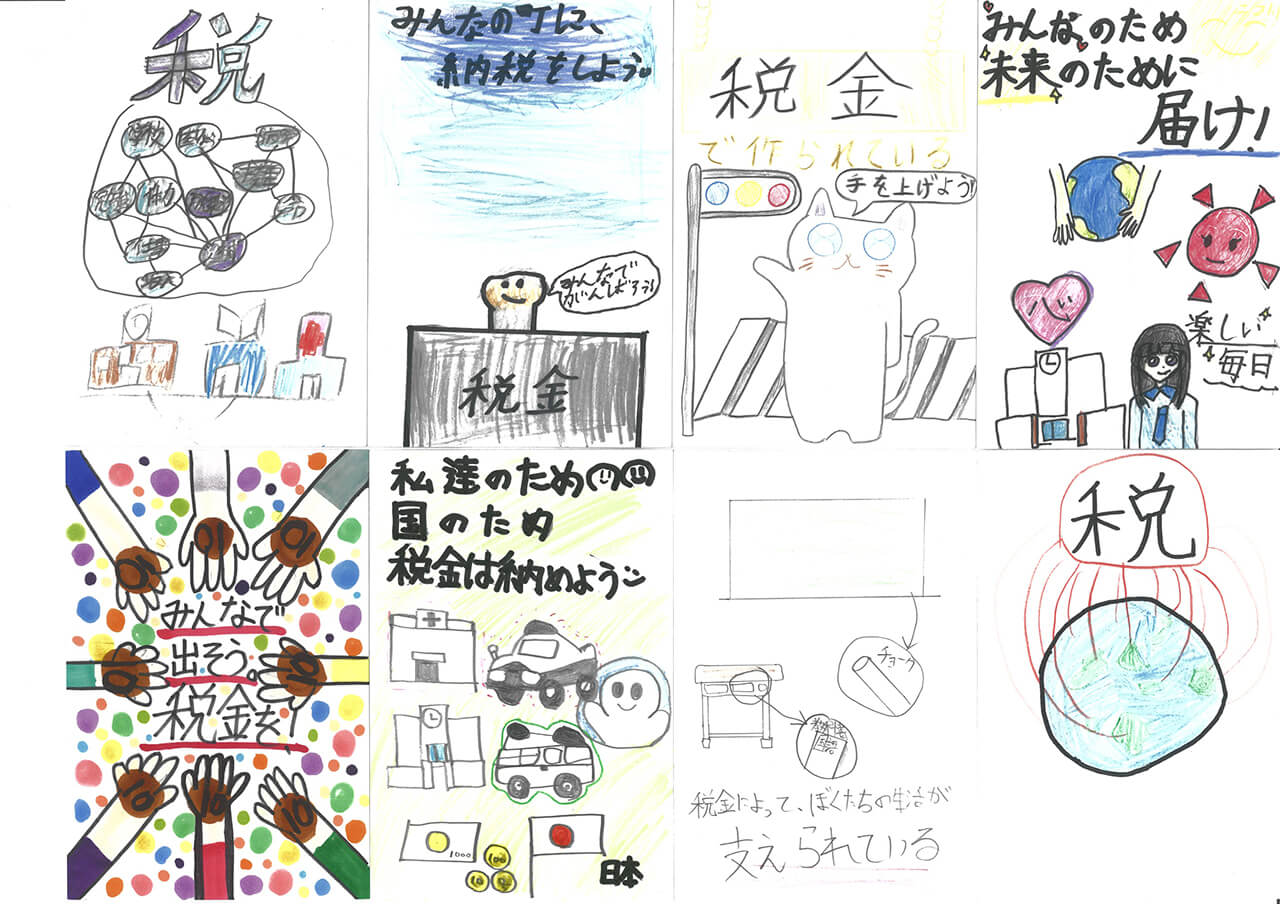 税
学校
仕事
みんなの
に、
納税をしよう。
みんなで
がんばろう!
税金
税金
で作られている
手を上げよう!
みんなのため
未来のために
届け!
楽しい
毎日
10
10
10
10
10
10
10
10
みんなで
出そう。
税金を!
私達のため
国のため
税金は納めよう
1000
10
10
10
日本
チョーク
税金によって、ぼくたちの生活が
支えられている
税